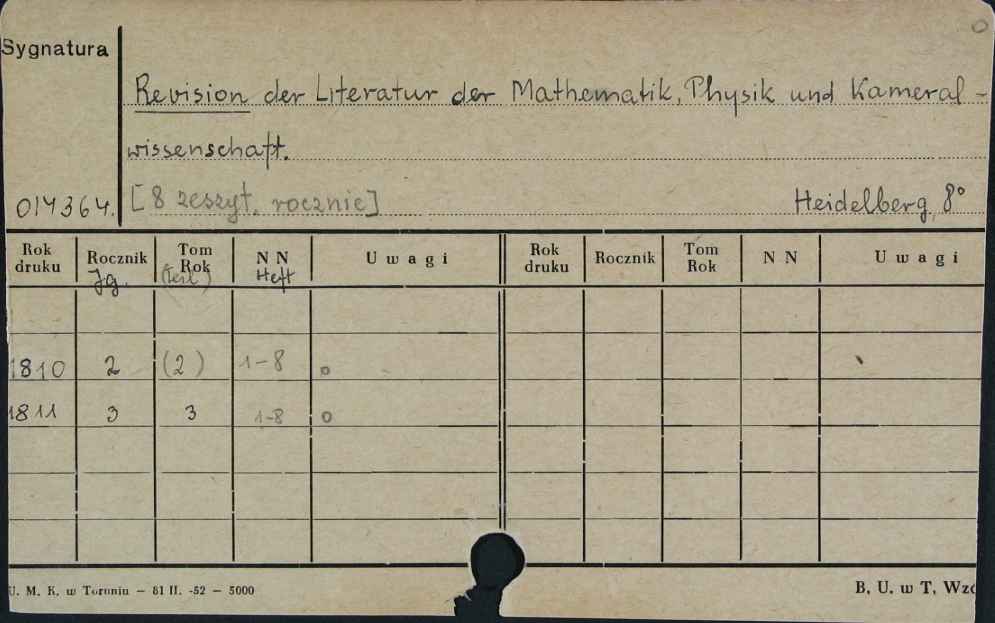 Sygnatura
Revision der Literatur der Mathematik, Physik und Kameral-
wissenschaft.
014364. [8 zeszyt. rocznie] Heidelberg, 8°
Rok druku Rocznik Tom Rok N N U w a g i Rok druku Rocznik Tom Rok N N U w a g i
Jg. (Teil) Heft
1810 2 (2) 1-8 o
1811 3 3 1-8 o
U. M. K. w Toruniu — 81 II. -52 — 5000 B. U. w T, Wzó